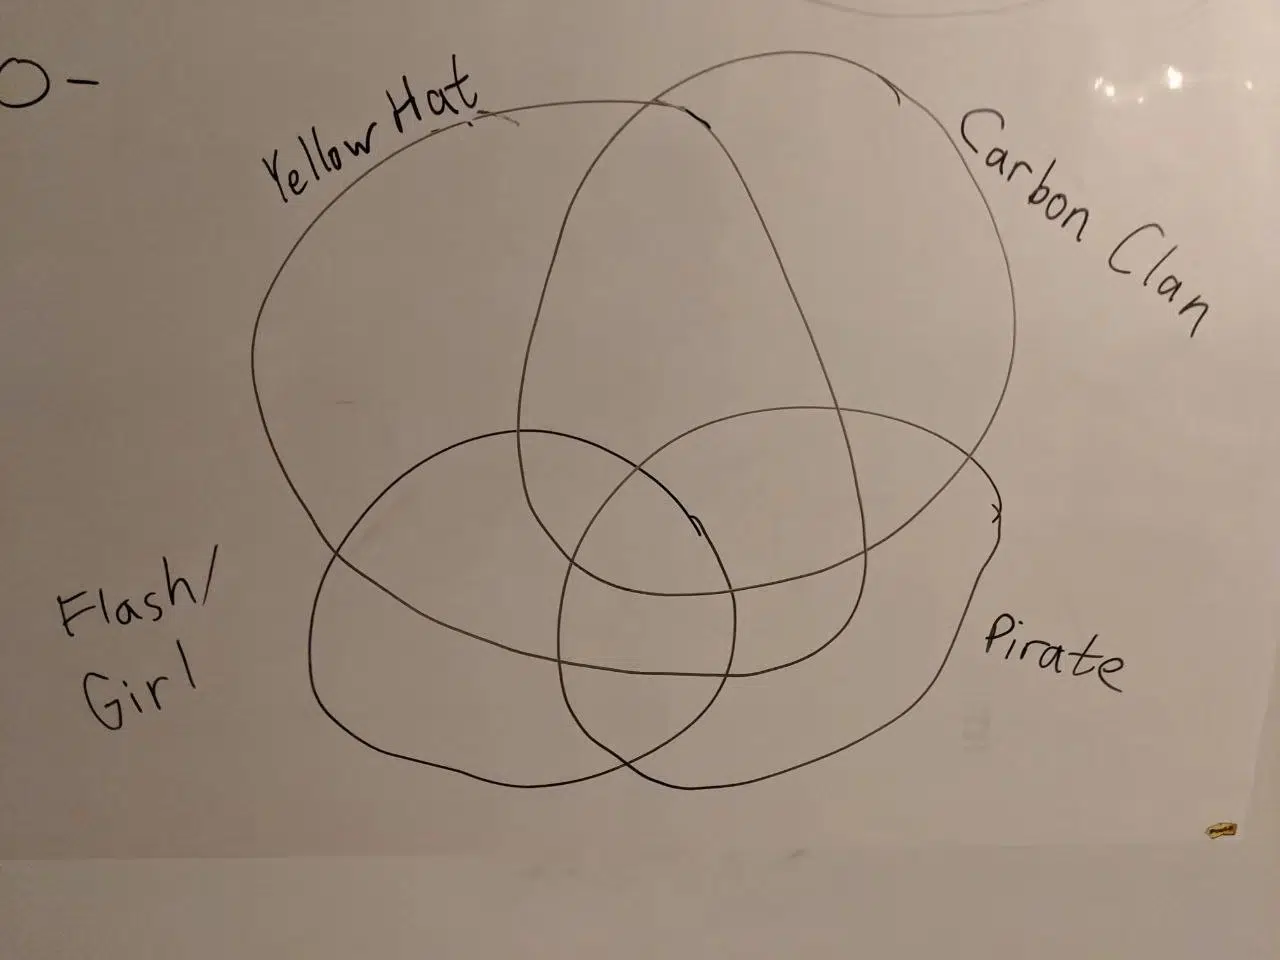 O-
Yellow Hat
Carbon Clan
Flash/
Girl
Pirate